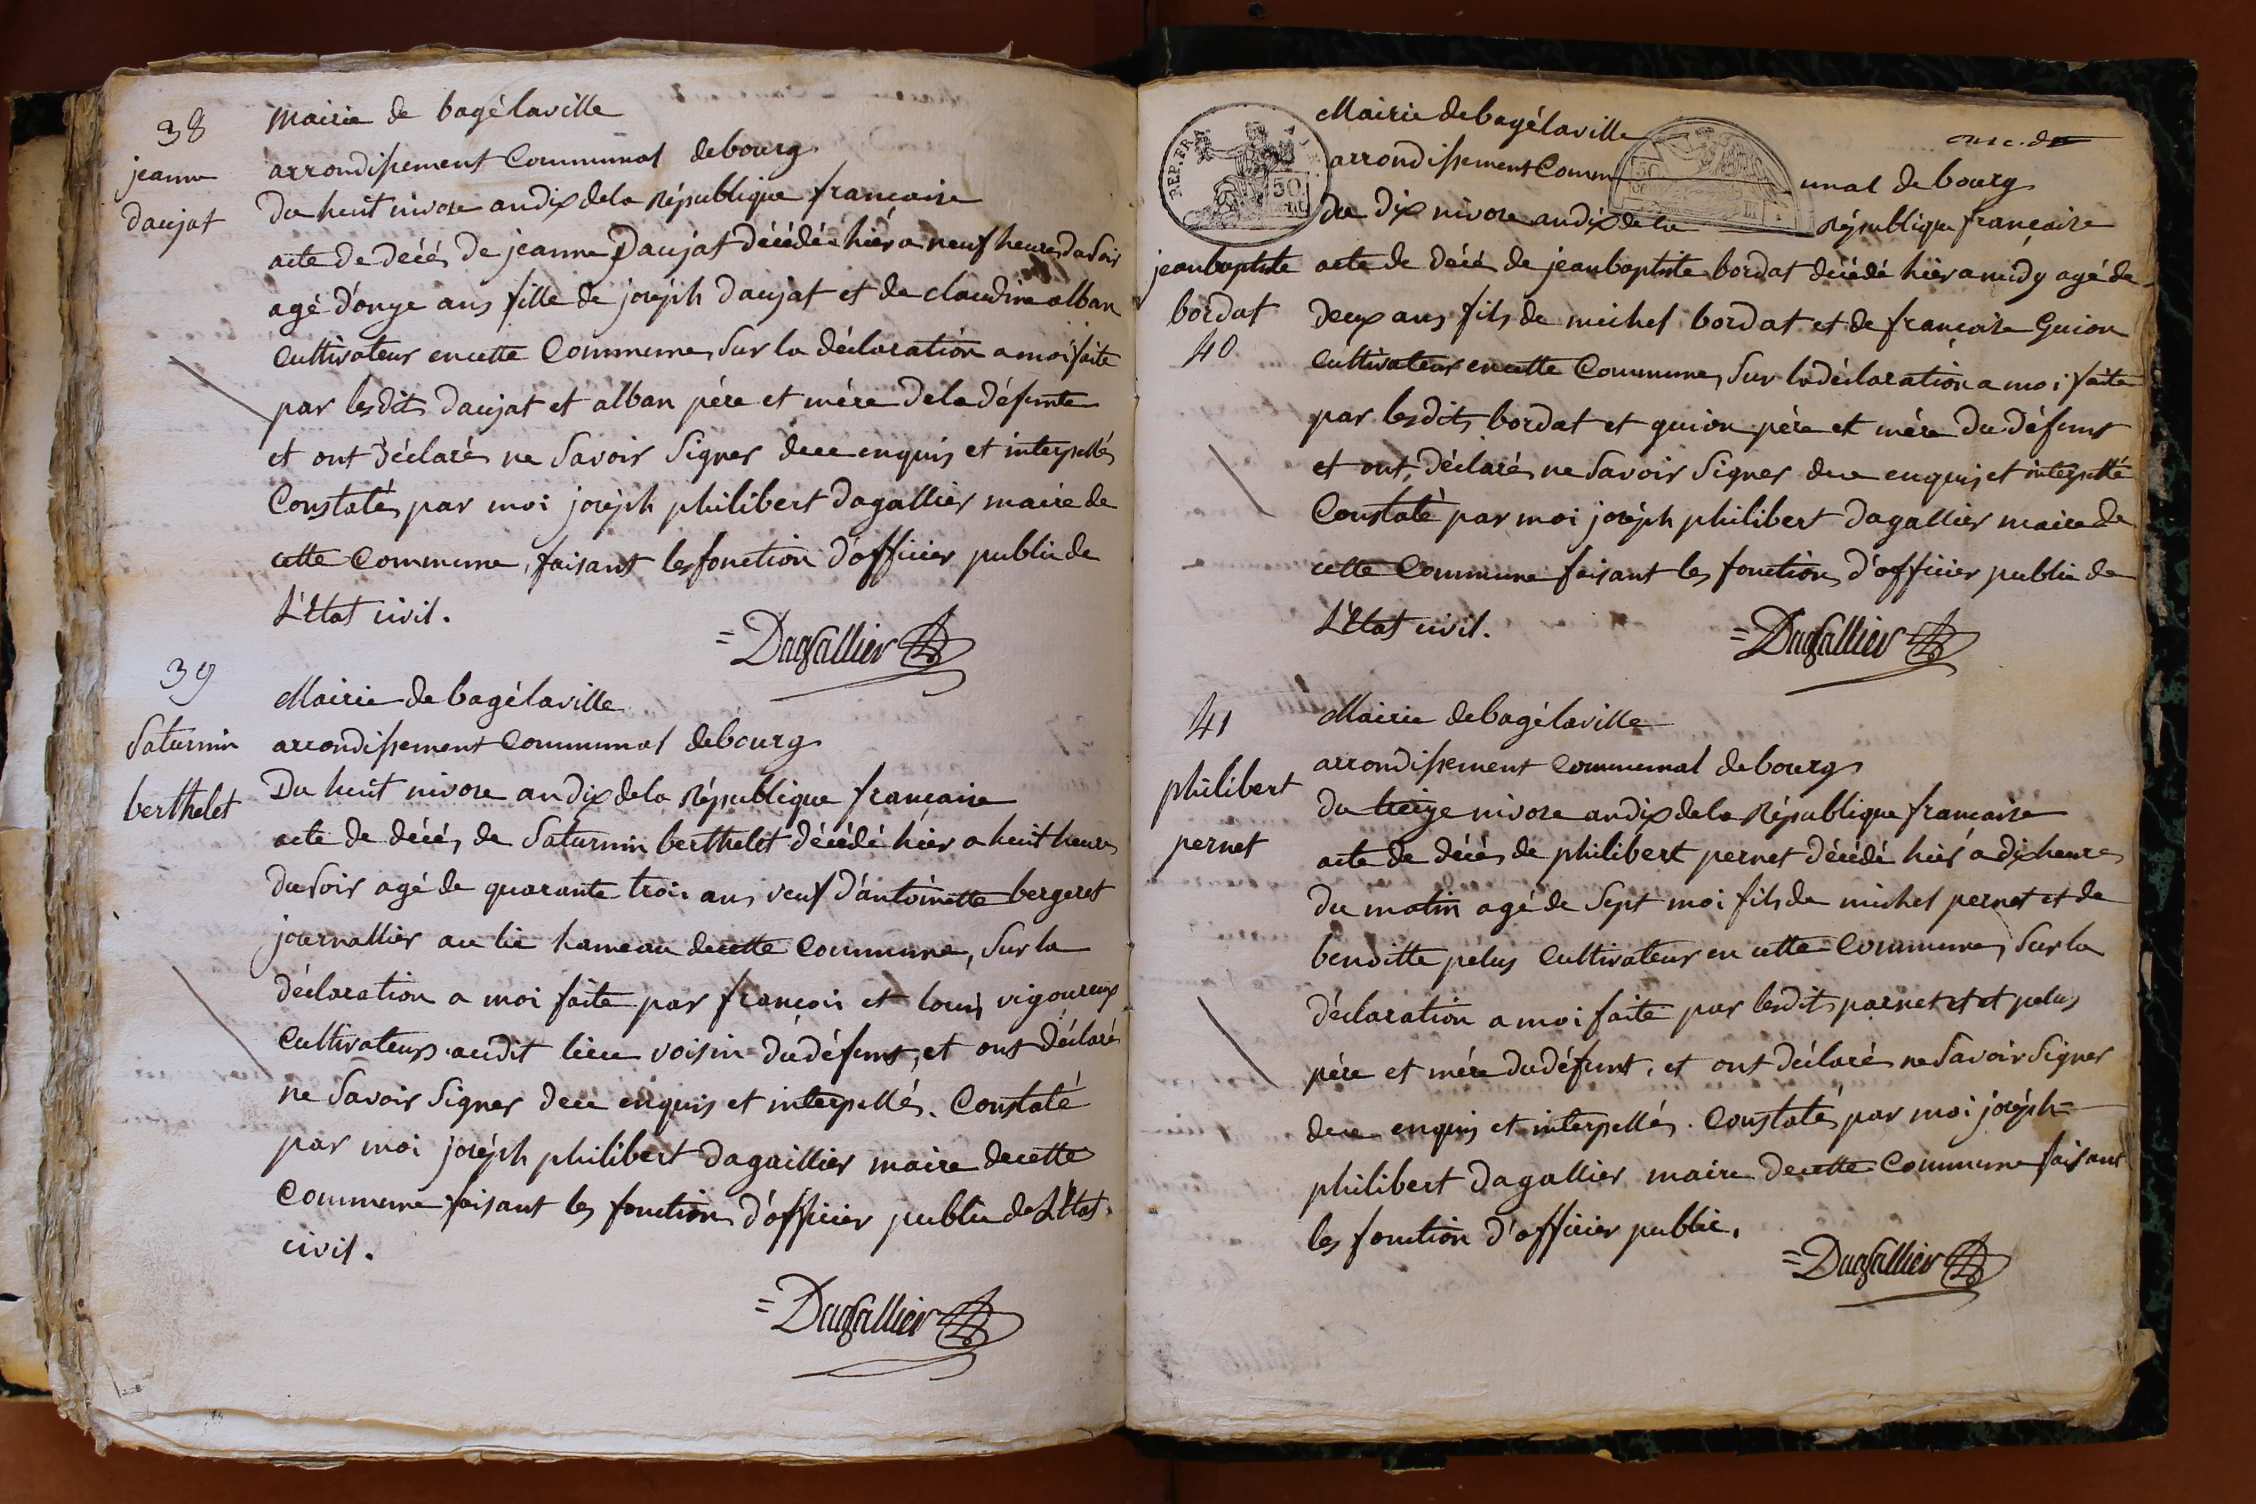 38
jeanne
daujat
Mairie de bagélaville
arrondissement Communal debourg
Du huit nivose an dix dela République francaise
acte de décé de jeanne Daujat décédée hier a neuf heures du soir
agé d'onze ans fille de joséph daujat et de claudine alban
Cultivateur en cette Commune, Sur la déclaration a moi faite
par lesdits daujat et alban pére et mére dela défunte
et ont déclaré ne Savoir Signer de ce enquis et interpellés
Constaté par moi joséph philibert dagallier maire de
cette Commune, faisant les fonction d'officier public de
L'Etat civil.
=Dagallier
39
Saturnin
berthelet
Mairie de bagélaville
arrondissement Communal debourg
Du huit nivose an dix dela République francaise
acte de décé, de Saturnin berthelet décédé hiér a huit heures
du soir agé de quarante trois ans veuf d'antoinette bergeret
journallier au lie hameau decette Commune, Sur la
déclaration a moi faite par francois et louis vigoureux
Cultivateurs audit lieu voisin du défunt, et ont déclaré
ne Savoir Signer de ce enquis et interpellés. Constaté
par moi joséph philibert dagaillier maire decette
Commune faisant les fonction d'officier public de L'Etat
civil.
=Dagallier
REP. FRA
50
Mairie debagélaville
arrondissement Communal de bourg
du dix nivose an dix de la République francaise
jean baptiste
bordat
40
acte de décé de jean baptiste bordat décédé hier a midy agé de
deux ans fils de michel bordat et de francoise Guion
Cultivateur en cette Commune, Sur la déclaration a moi faite
par lesdits bordat et guion pére et mére du défunt
et ont déclaré ne Savoir Signer de ce enquis et interpellé
Constaté par moi joséph philibert dagallier maire de
cette Commune faisant les fonction d'officier public de
L'Etat civil.
=Dagallier
41
philibert
pernet
Mairie debagélaville
arrondissement Communal debourg
du treize nivose an dix dela République francaise
acte de décé de philibert pernet décédé hiér a dix heures
du matin agé de Sept moi fils de michel pernet et de
benditte pelus Cultivateur en cette Commune, Sur la
déclaration a moi faite par lesdits parnet et et pelus
pére et mére du défunt, et ont déclaré ne Savoir Signer
de ce enquis et interpellés. Constaté par moi joséph
philibert dagallier maire decette Commune faisant
les fonction d'officier public.
=Dagallier